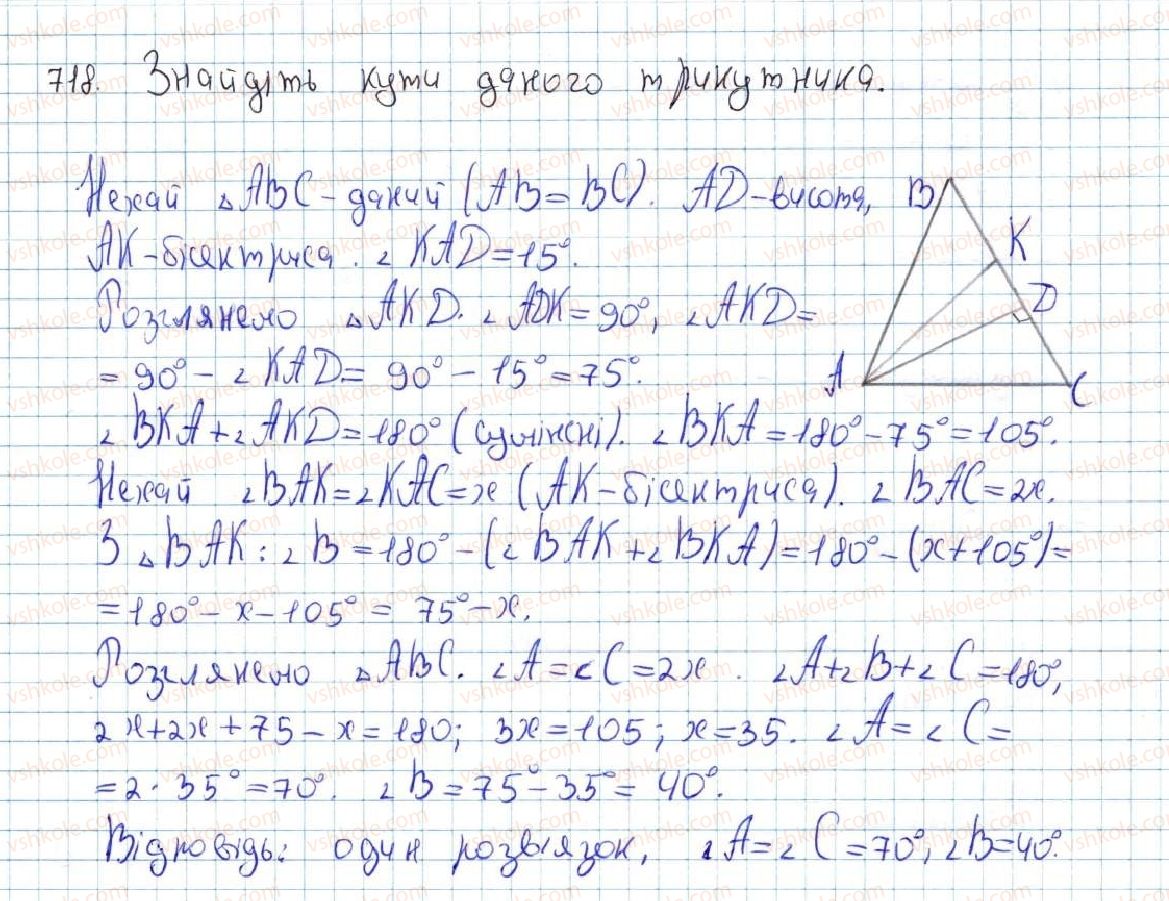 718. Знайдіть кути даного трикутника.
Нехай △ABC - даний (AB = BC). AD - висота,
AK - бісектриса. ∠KAD = 15°.
Розглянемо △AKD. ∠ADK = 90°, ∠AKD =
= 90° - ∠KAD = 90° - 15° = 75°.
∠BKA + ∠AKD = 180° (суміжні). ∠BKA = 180° - 75° = 105°.
Нехай ∠BAK = ∠KAC = x (AK - бісектриса). ∠BAC = 2x.
З △BAK: ∠B = 180° - (∠BAK + ∠BKA) = 180° - (x + 105°) =
= 180° - x - 105° = 75° - x.
Розглянемо △ABC. ∠A = ∠C = 2x. ∠A + ∠B + ∠C = 180°,
2x + 2x + 75 - x = 180; 3x = 105; x = 35. ∠A = ∠C =
= 2 · 35° = 70°. ∠B = 75° - 35° = 40°.
Відповідь: один розв'язок, ∠A = ∠C = 70°, ∠B = 40°.
B
K
D
A
C
vshkole.com